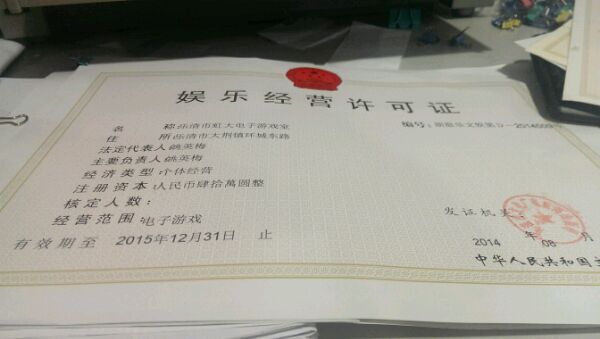 娱乐经营许可证
编号:
名 称:乐清市虹大电子游戏室
住 所:乐清市大荆镇环城东路
法定代表人:姚英梅
主要负责人:姚英梅
经济类型:个体经营
注册资本:人民币肆拾萬圆整
核定人数:
经营范围:电子游戏
有效期至 2015年12月31日 止
发证机关:
2014 年 08 月
中华人民共和国